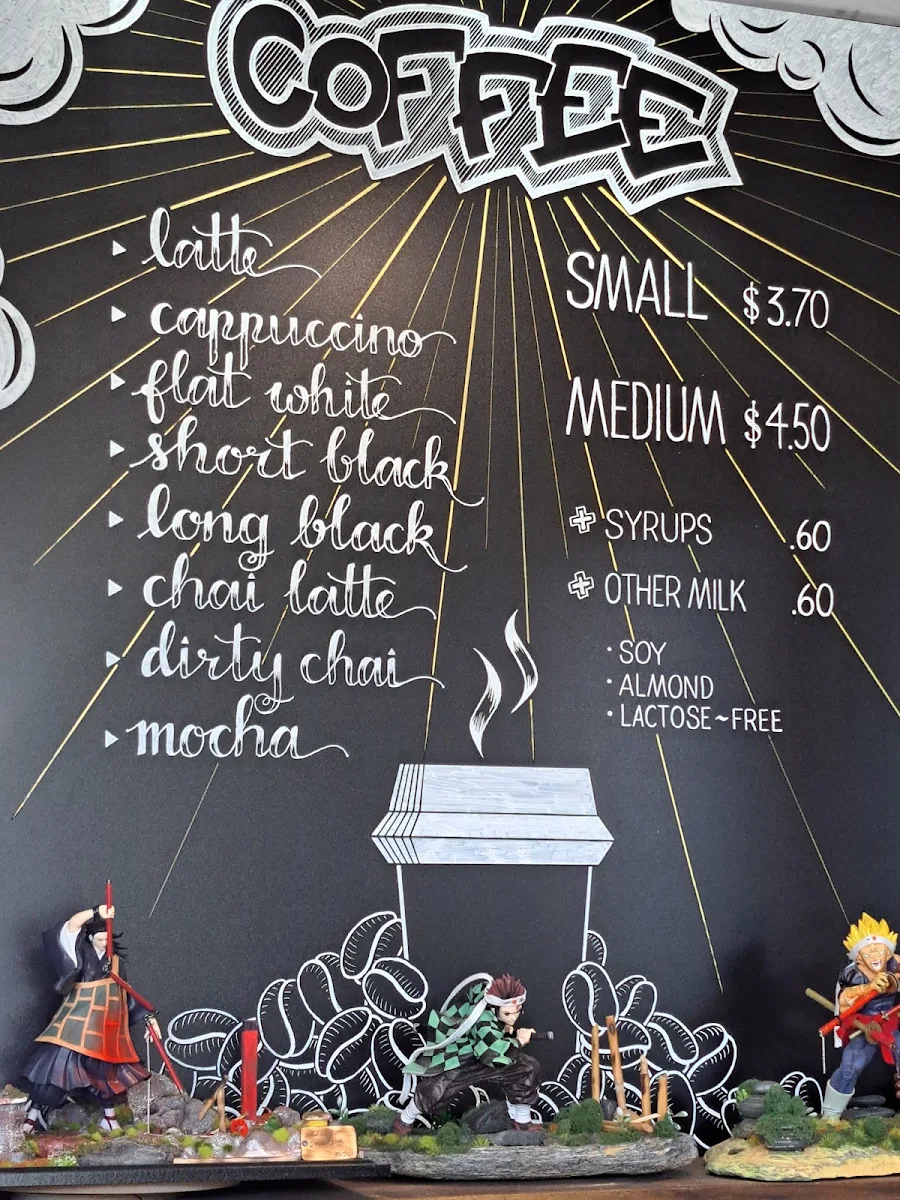 COFFEE
latte
cappuccino
flat white
short black
long black
chai latte
dirty chai
mocha
SMALL $3.70
MEDIUM $4.50
+ SYRUPS .60
+ OTHER MILK .60
· SOY
· ALMOND
· LACTOSE~FREE